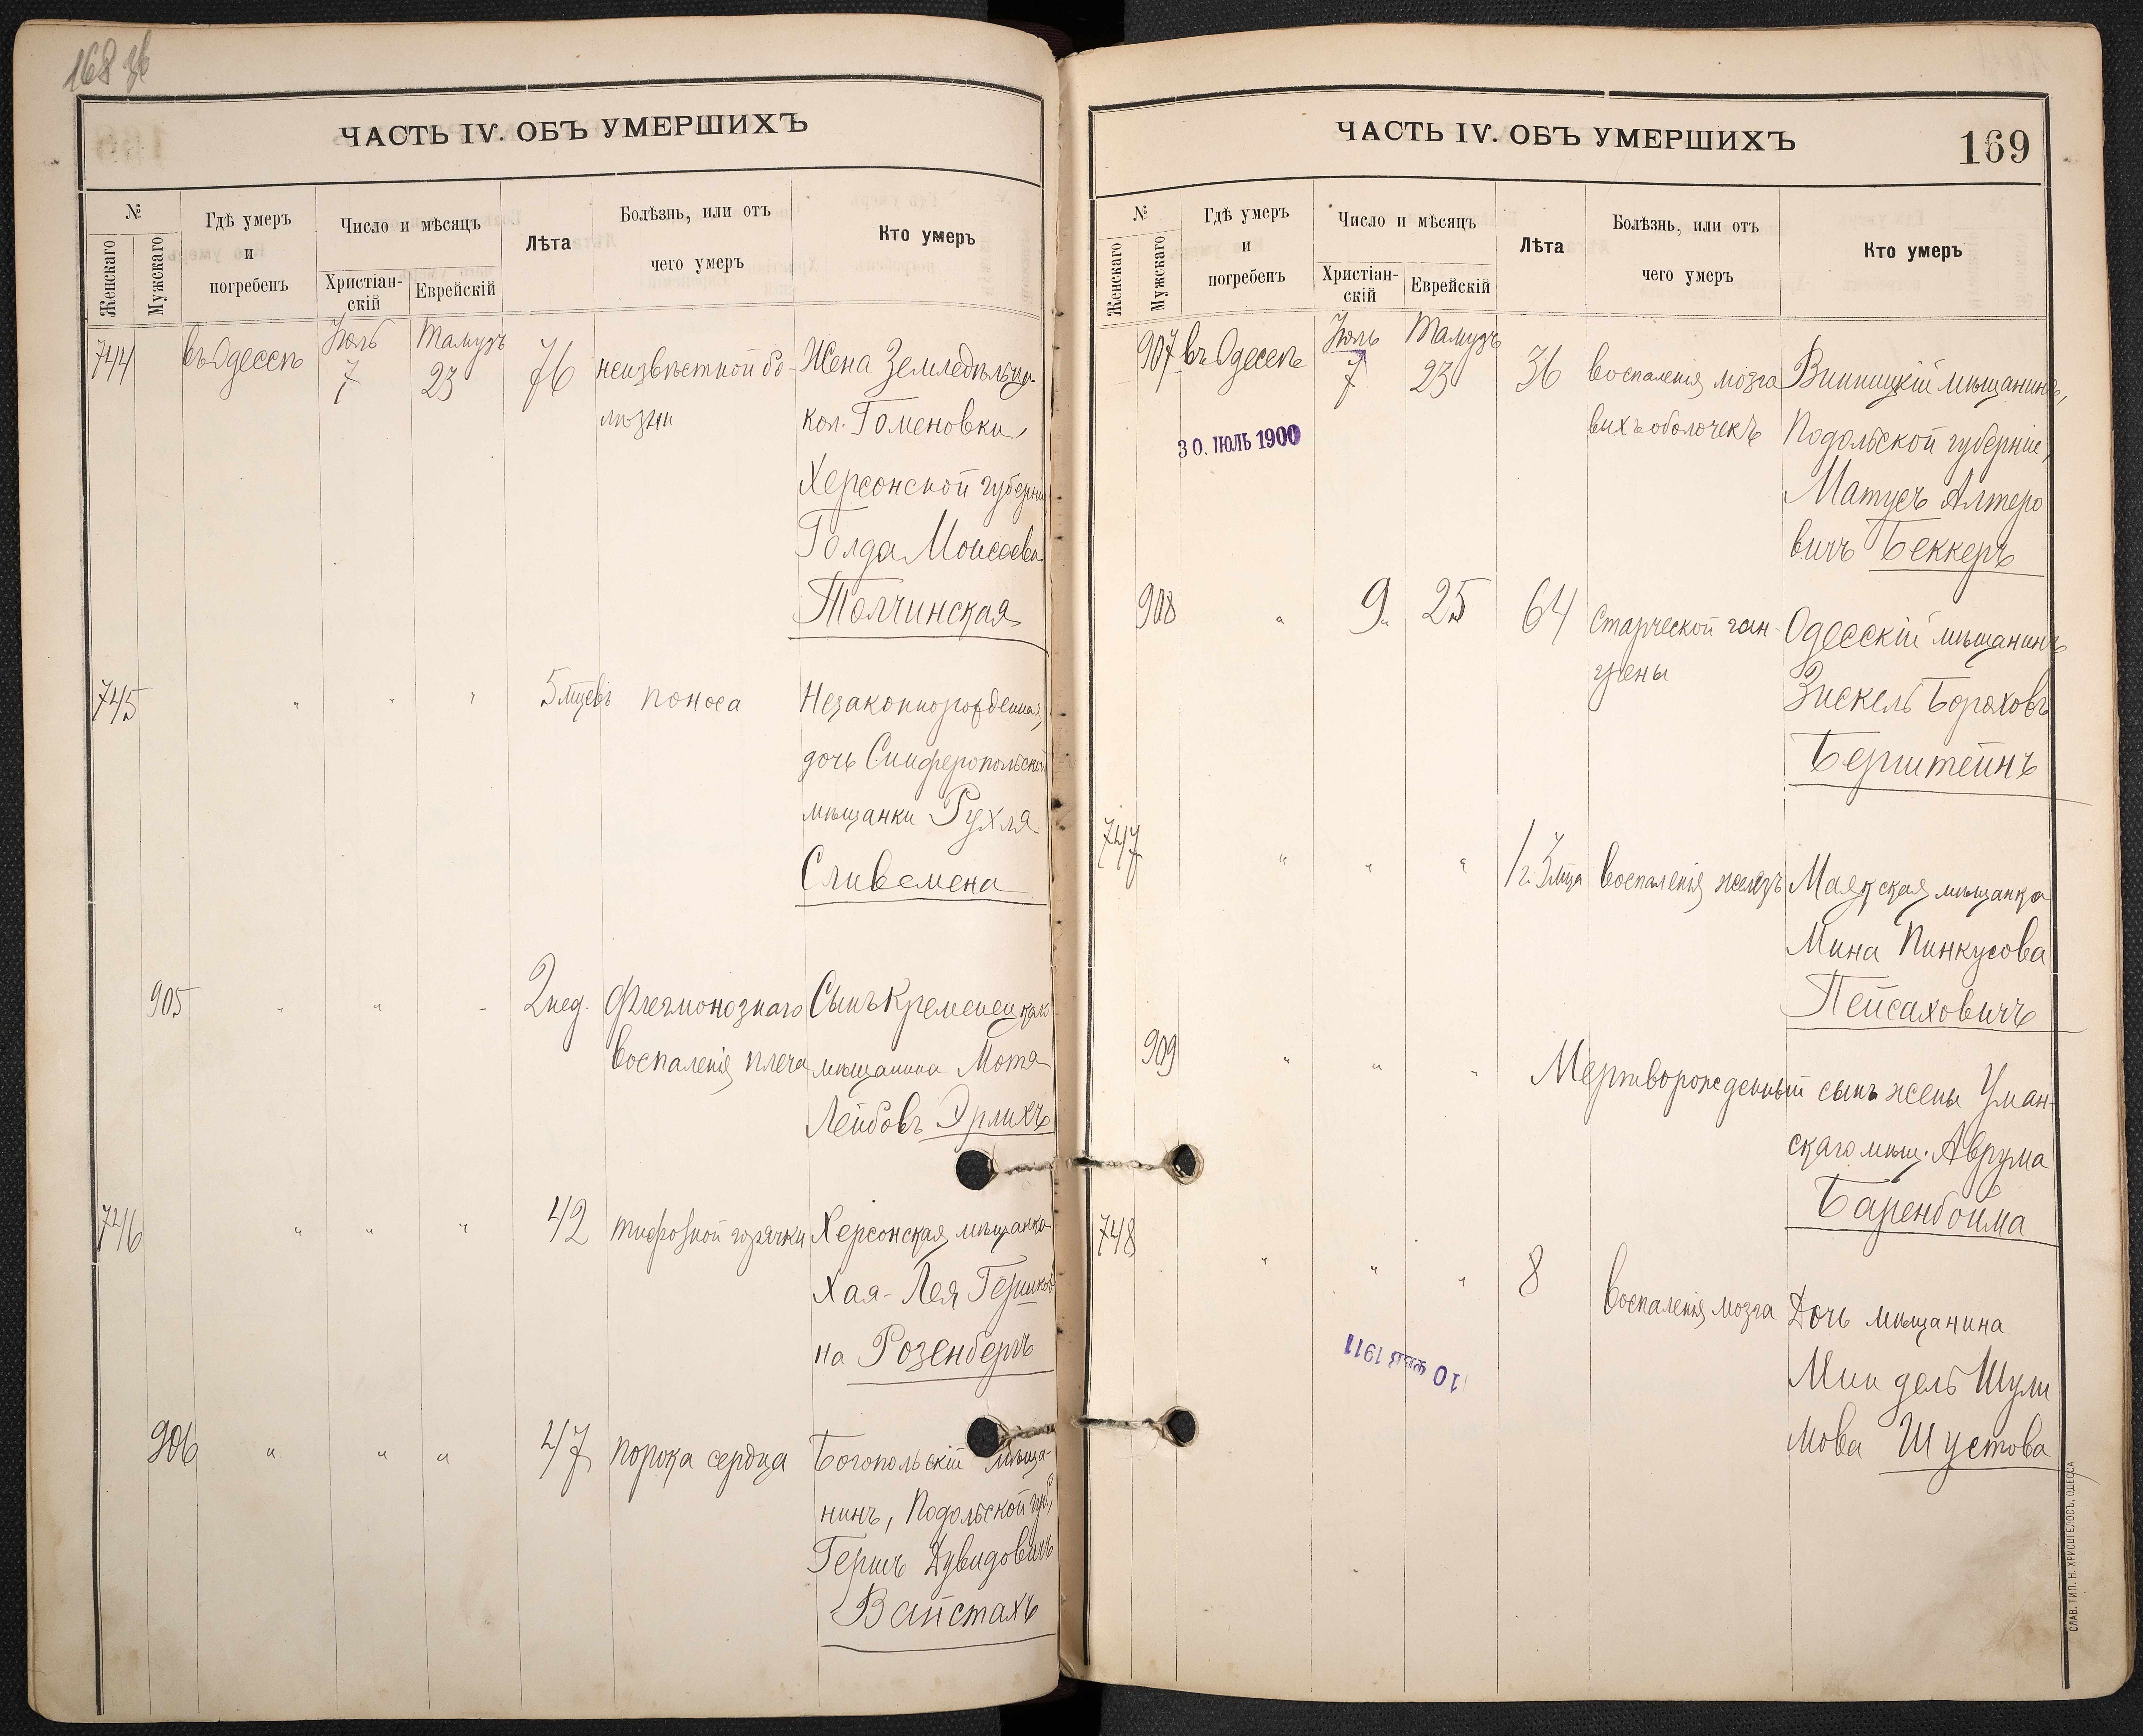 168 зб
ЧАСТЬ IV. ОБЪ УМЕРШИХЪ
№
Женскаго
Мужскаго
Гдѣ умеръ
и
погребенъ
Число и мѣсяцъ
Христіан-
скій
Еврейскій
Лѣта
Болѣзнь, или отъ
чего умеръ
Кто умеръ
744 въ Одессѣ Іюль 7 Тамузъ 23 76 неизвѣстной бо- Жена Земледѣльца
лѣзни кол. Гоменовки,
Херсонской губерніи
Голда Моисеева
Толчинская
745 " " " 5 мцевъ поноса Незаконнорожденная,
дочь Симферопольской
мѣщанки Рухля
Сливемена
905 " " " 2 нед. флегмонознаго Сынъ Кременецкаго
воспаленія плеча мѣщанина Мотя
Лейбовъ Эрлихъ
746 " " " 42 тифозной горячки Херсонская мѣщанка
Хая-Лея Гершков
на Розенбергъ
906 " " " 47 порока сердца Богопольскій мѣща-
нинъ, Подольской губ.,
Гершъ Дувидовичъ
Вайстахъ
ЧАСТЬ IV. ОБЪ УМЕРШИХЪ
169
№
Женскаго
Мужскаго
Гдѣ умеръ
и
погребенъ
Число и мѣсяцъ
Христіан-
скій
Еврейскій
Лѣта
Болѣзнь, или отъ
чего умеръ
Кто умеръ
907 въ Одессѣ Іюль 7 Тамузъ 23 36 воспаленія мозго Винницкій мѣщанинъ,
выхъ оболочекъ Подольской губерніи,
30. ІЮЛЬ 1900
Матусъ Алтеро
вичъ Беккеръ
908 " 9 25 64 Старческой ган- Одесскій мѣщанинъ
грены Зискель Бороховъ
Берштейнъ
747 " " " 1 г. 3 мца воспаленія железъ Маякская мѣщанка
Мина Пинкусова
Пейсаховичъ
909 " " " Мертворожденный сынъ жены Уман-
скаго мѣщ. Аврума
Баренбойма
748 " " " 8 воспаленія мозга Дочь мѣщанина
Миндель Шули
мова Шустова
10 ФЕВ 1911
СЛАВ. ТИП. Н. ХРИСОГЕЛОСЪ, ОДЕССА